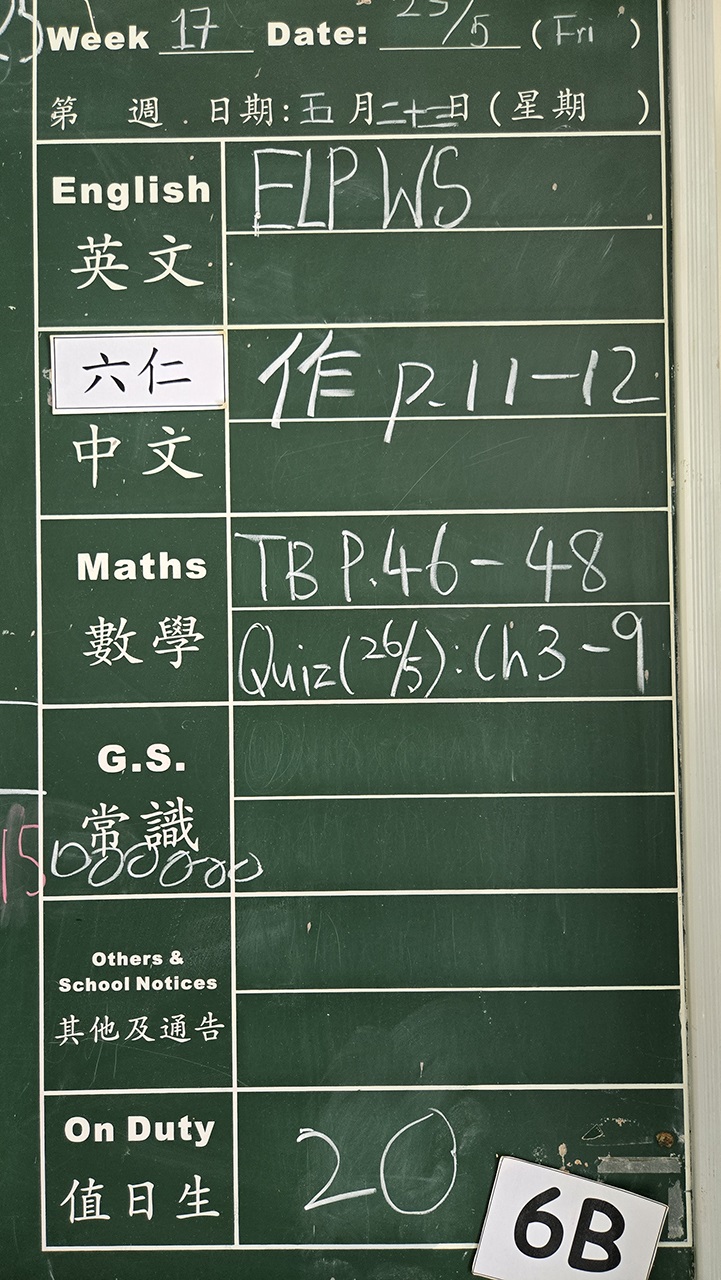 Week 17 Date: 23/5 (Fri)
第 週 日期: 五 月 二十三 日 (星期 )
English ELP WS
英文
六仁 作 p.11-12
中文
Maths TB P.46-48
數學 Quiz (26/5): Ch3-9
G.S.
常識
Others &
School Notices
其他及通告
On Duty 20
值日生
6B